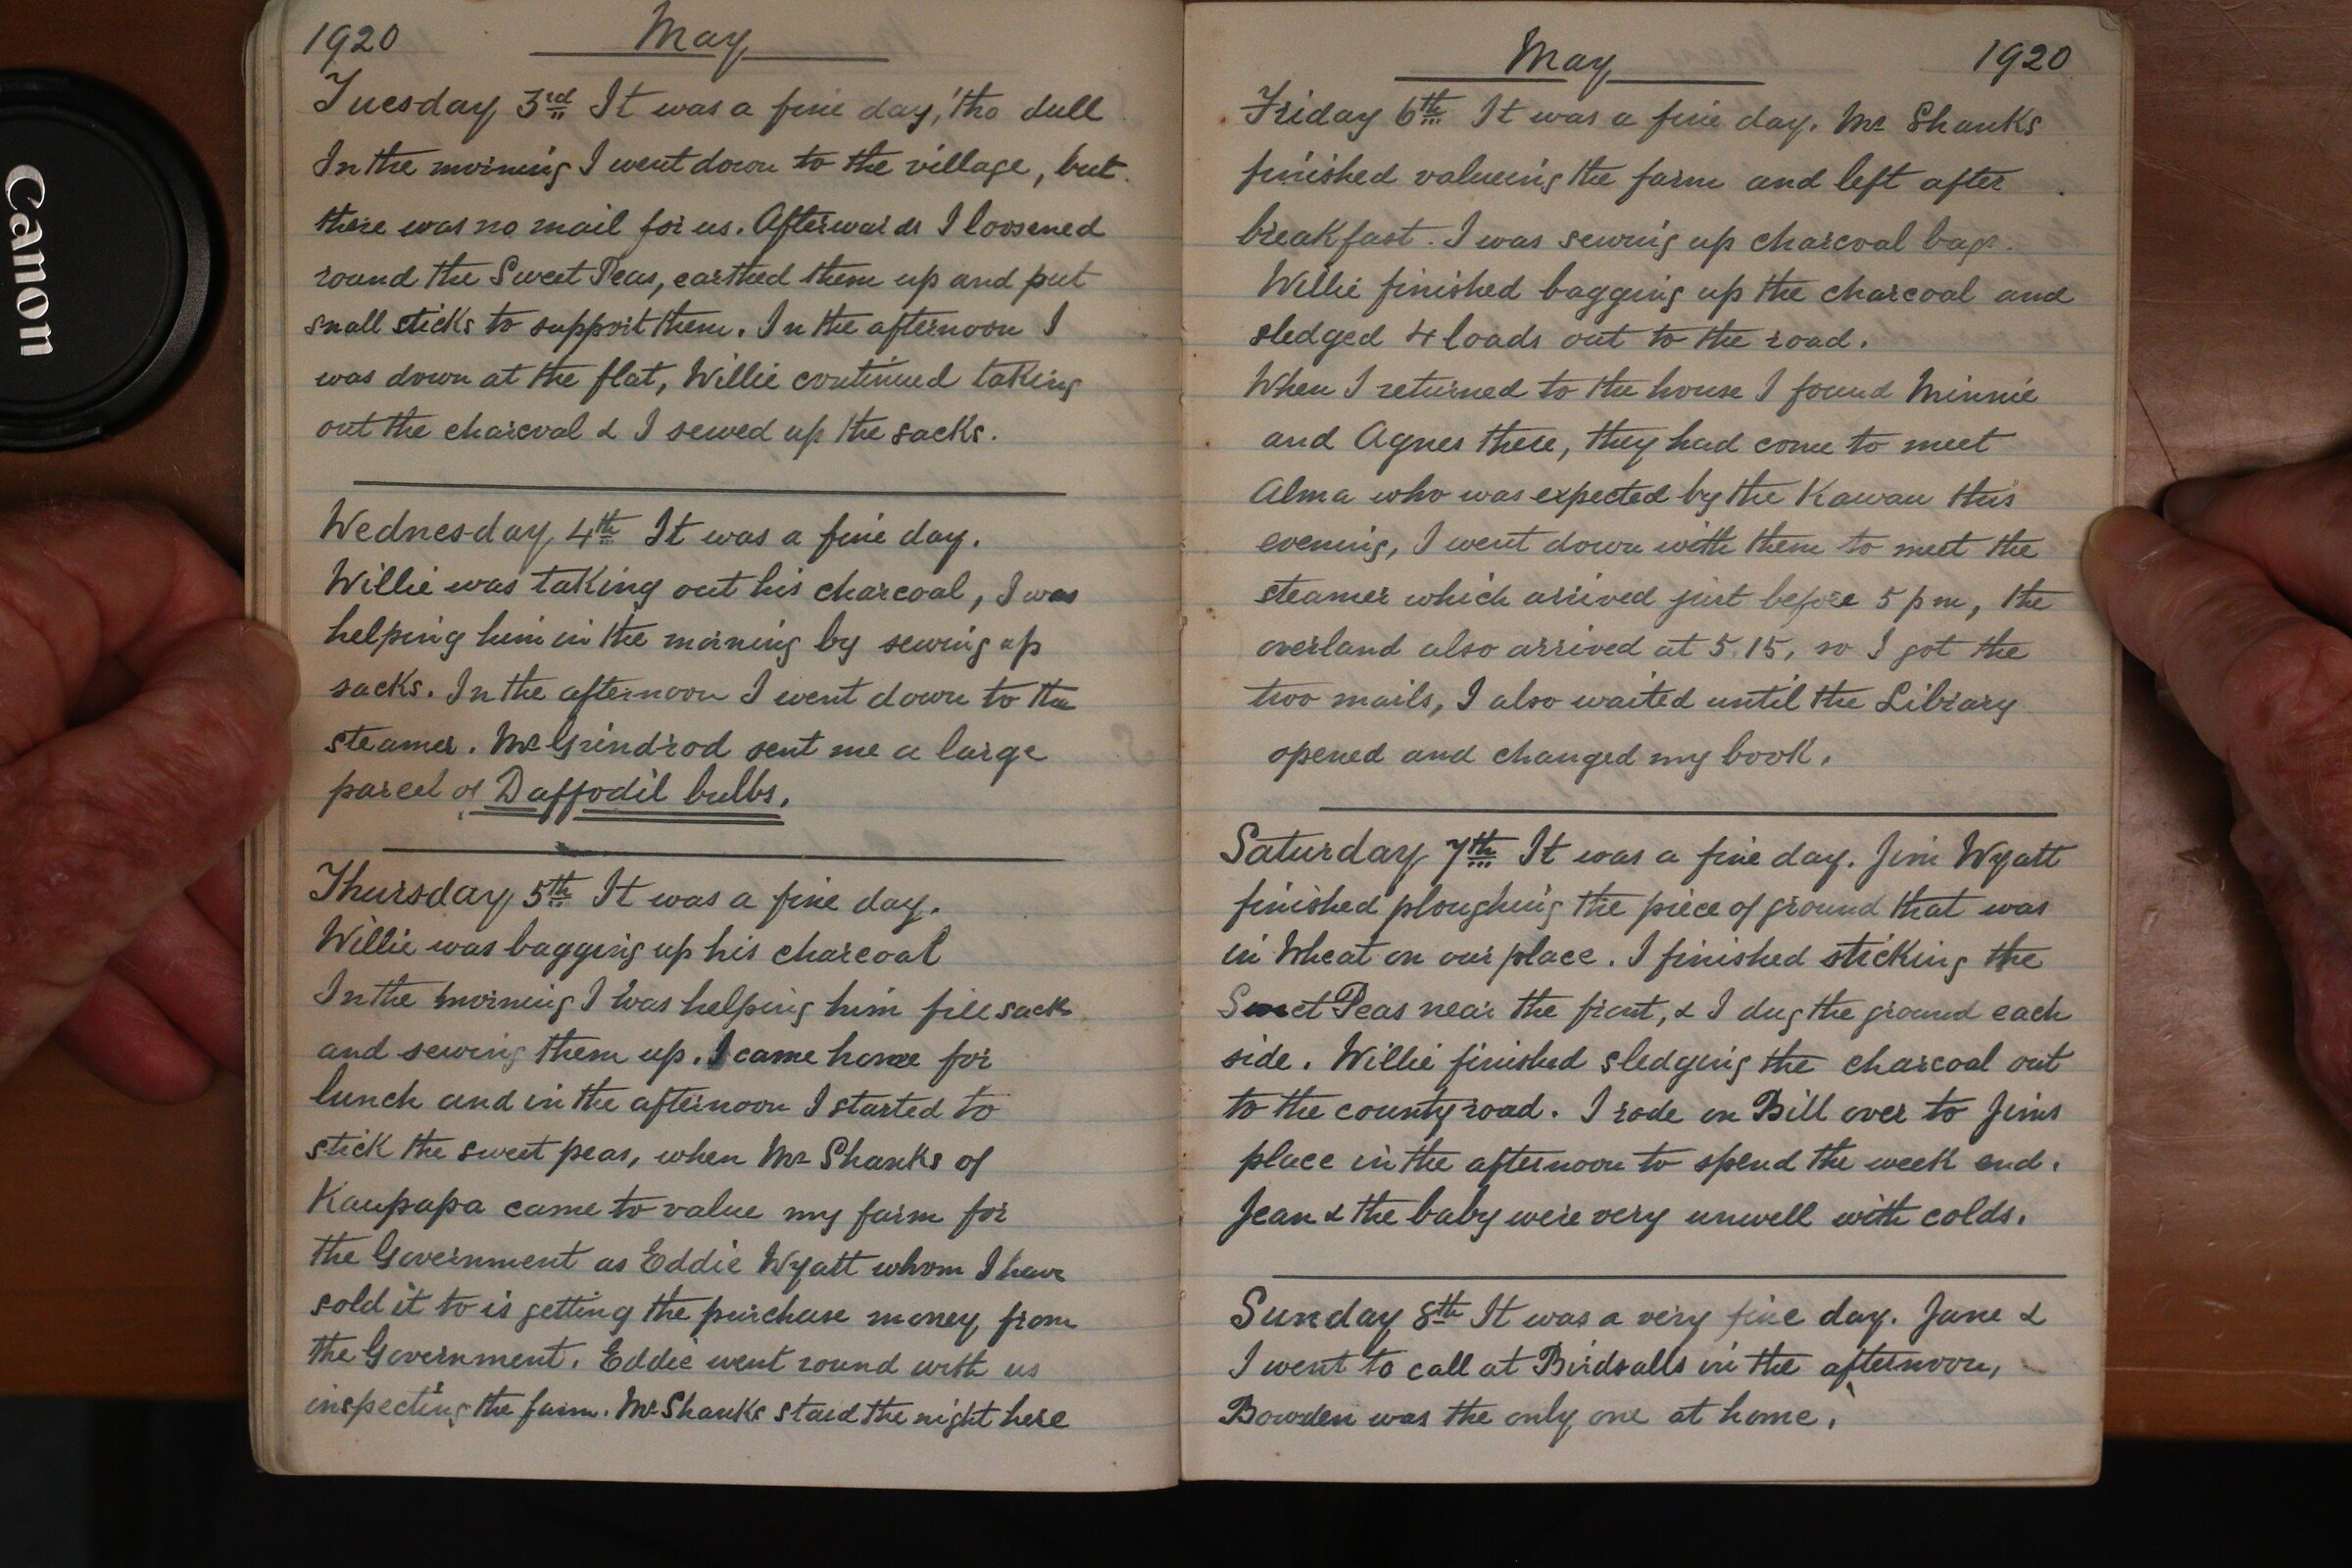 Canon
1920 May
Tuesday 3rd It was a fine day, 'tho dull
In the morning I went down to the village, but
there was no mail for us. Afterwards I loosened
round the Sweet Peas, earthed them up and put
small sticks to support them. In the afternoon I
was down at the flat, Willie continued taking
out the charcoal & I sewed up the sacks.
Wednesday 4th It was a fine day.
Willie was taking out his charcoal, I was
helping him in the morning by sewing up
sacks. In the afternoon I went down to the
steamer. Mr Grindrod sent me a large
parcel of Daffodil bulbs.
Thursday 5th It was a fine day.
Willie was bagging up his charcoal
In the morning I was helping him fill sack
and sewing them up. I came home for
lunch and in the afternoon I started to
stick the sweet peas, when Mr Shanks of
Kaupapa came to value my farm for
the Government as Eddie Wyatt whom I have
sold it to is getting the purchase money from
the Government. Eddie went round with us
inspecting the farm. Mr Shanks staid the night here
May 1920
Friday 6th It was a fine day. Mr Shanks
finished valueing the farm and left after
breakfast. I was sewing up charcoal bags.
Willie finished bagging up the charcoal and
sledged 4 loads out to the road.
When I returned to the house I found Minnie
and Agnes there, they had come to meet
Alma who was expected by the Kawau this
evening, I went down with them to meet the
steamer which arrived just before 5 pm, the
overland also arrived at 5.15, so I got the
two mails, I also waited until the Library
opened and changed my book.
Saturday 7th It was a fine day. Jim Wyatt
finished ploughing the piece of ground that was
in Wheat on our place. I finished sticking the
Sweet Peas near the front, & I dug the ground each
side. Willie finished sledging the charcoal out
to the county road. I rode on Bill over to Jims
place in the afternoon to spend the week end.
Jean & the baby were very unwell with colds.
Sunday 8th It was a very fine day. Jane &
I went to call at Birdsalls in the afternoon,
Bowden was the only one at home.